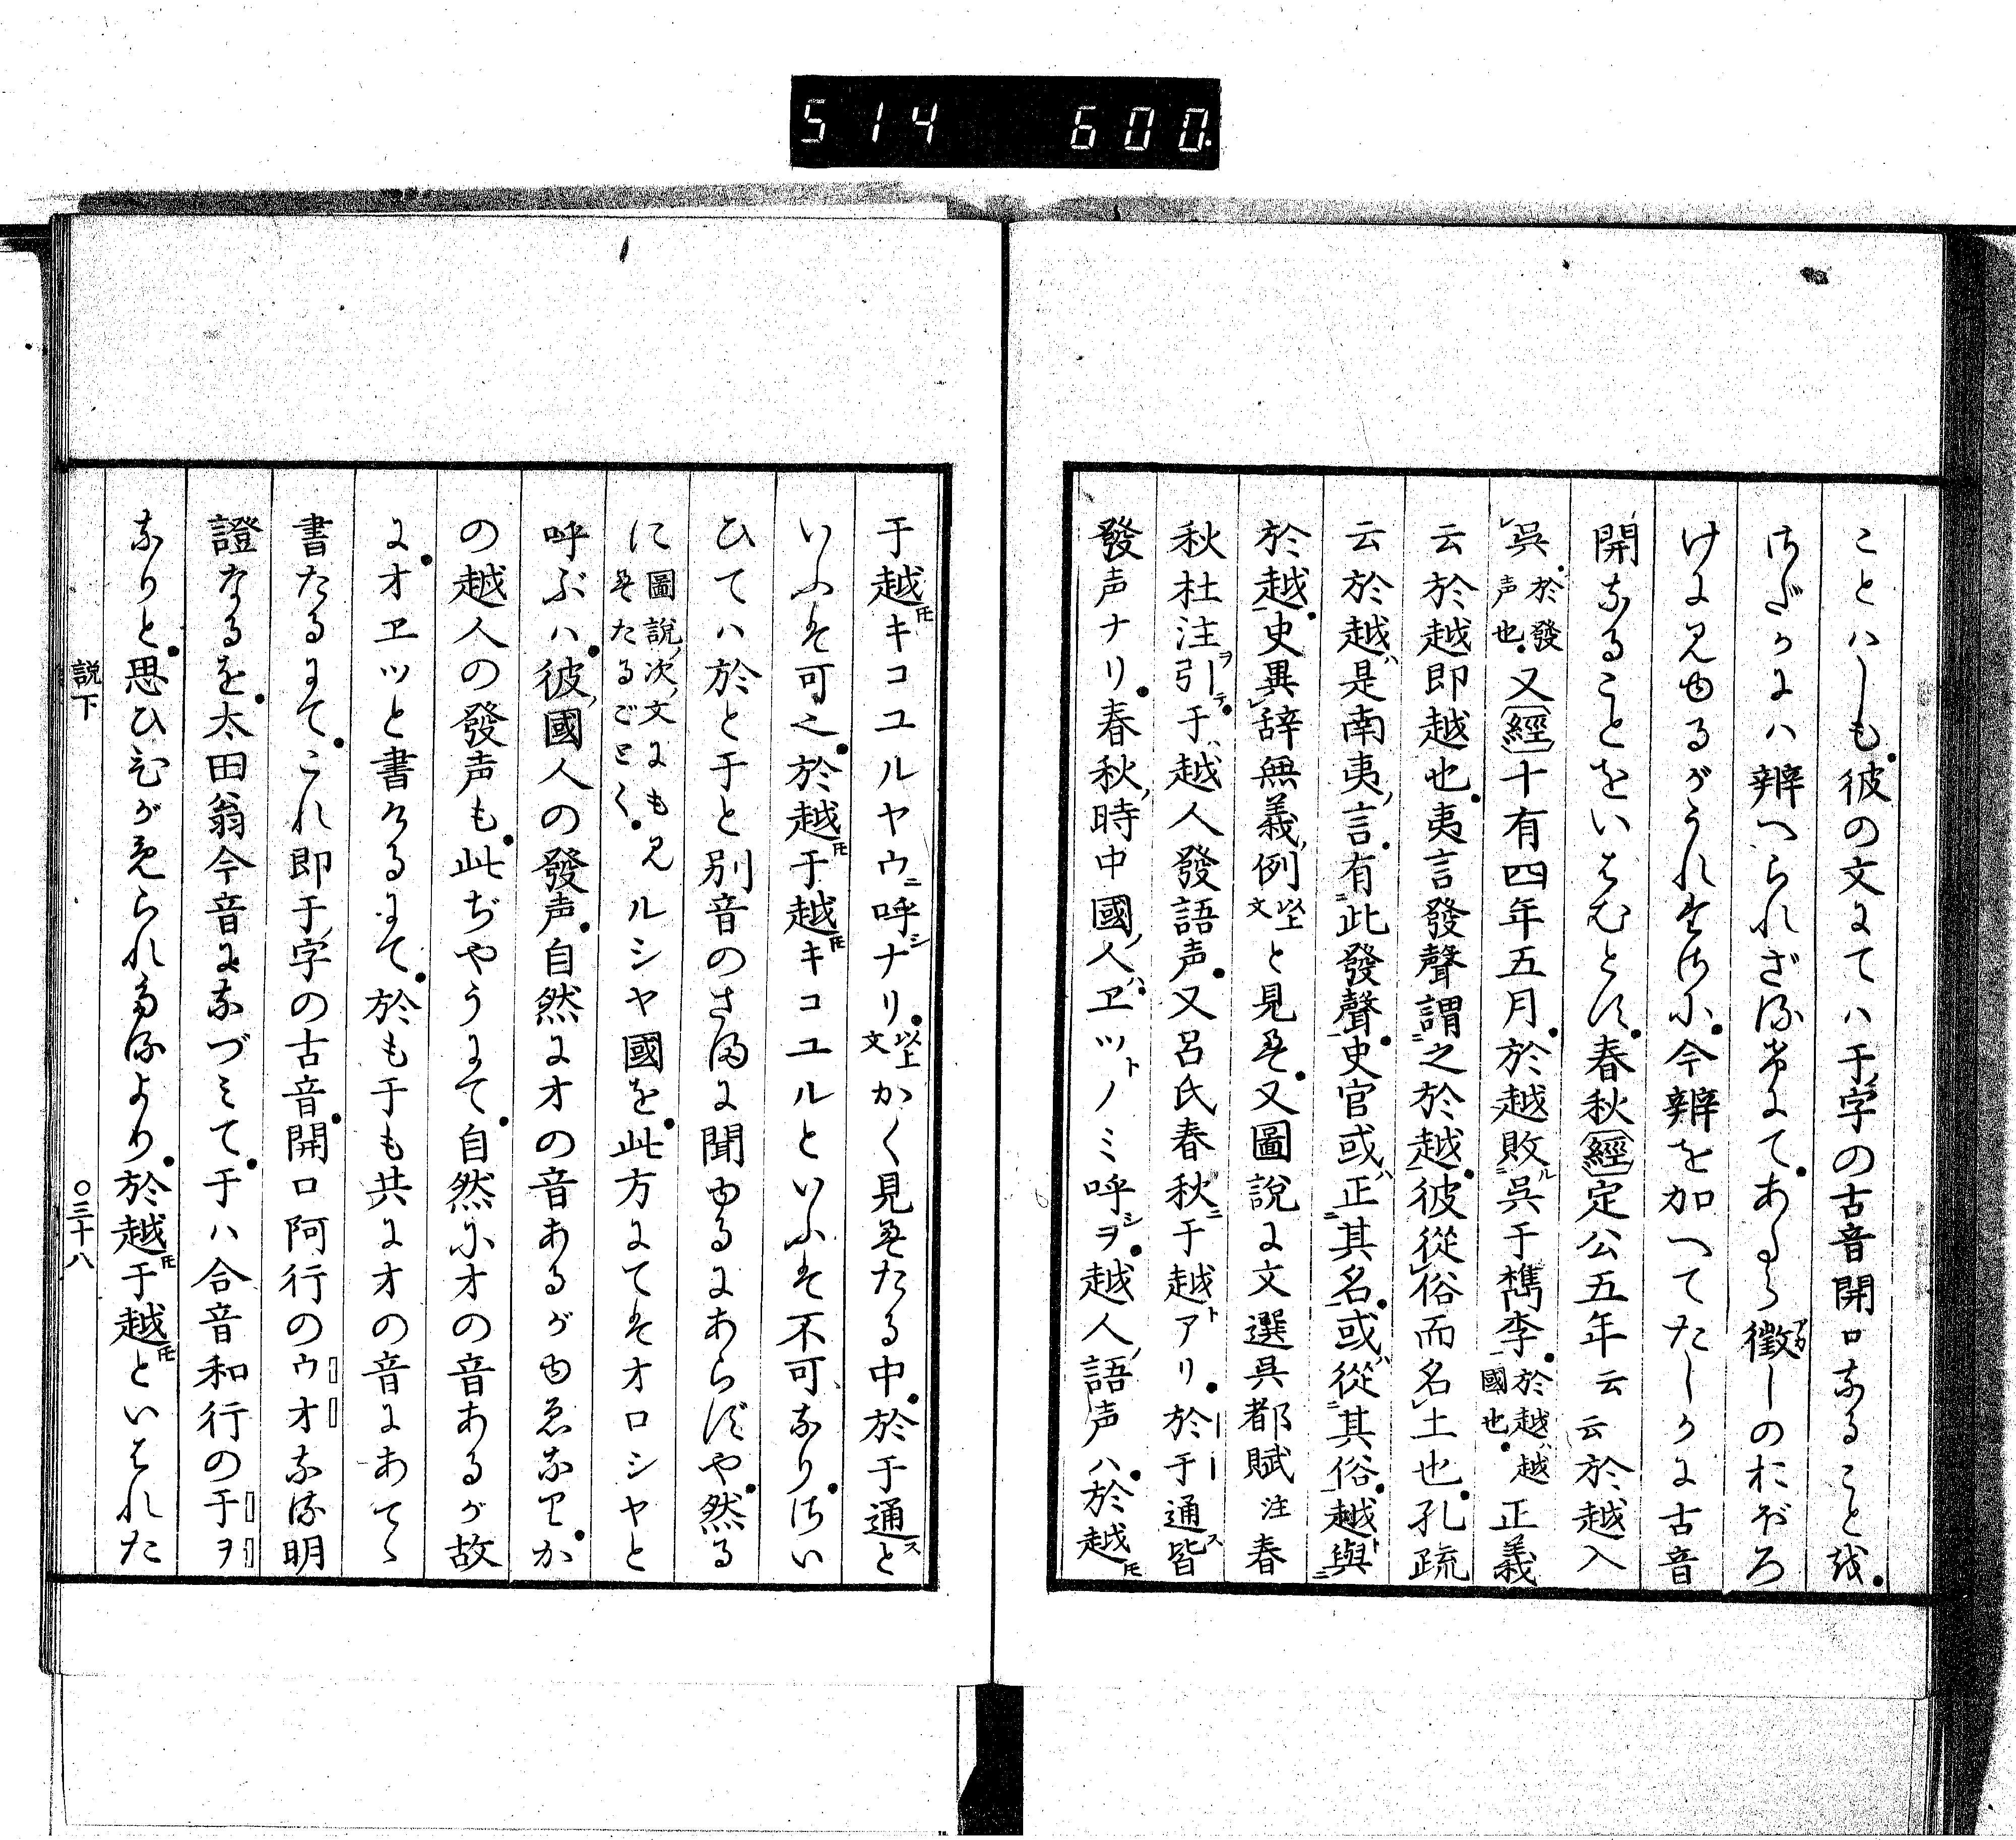 514 600.
ことハしも彼の文にてハ于字の古音開口なることを
さだかにハ辨へられざる常にてあから徴しのおぼろ
けに見ゆるがうれたさに今辨を加へてたしかに古音
開なることをいはむとす春秋經定公五年云云於越入
吳於發声也又經十有四年五月於越敗ル吳于檇李於越越國也正義
云於越即越也夷言發聲謂之於越彼從俗而名土也孔疏
云於越ハ是南夷ノ言有此發聲史官或ハ正其名或ハ從其俗越ト與
於越史異辞無義例以上文と見え又圖說に文選吳都賦注春
秋杜注ヲ引テ于ハ越人發語声又呂氏春秋ニ于越トアリ於于通ス皆
發声ナリ春秋ノ時中國ノ人ハヱツトノミ呼シヲ越人ノ語声ハ於越トモ
于越トモキコユルヤウニ呼シナリ以上文かく見えたる中於于通スと
いふは可之於越トモ于越トモキコユルといふは不可なりさい
ひてハ於と于と別音のさまに聞ゆるにあらずや然る
に圖說ノ次ノ文にも見えたるごとくルシヤ國を此方にてはオロシヤと
呼ぶハ彼ノ國人の發声自然にオの音あるがゆゑなりか
の越人の發声も此ぢやうにて自然にオの音あるが故
にオヱツと書けるにて於も于も共にオの音にあてゝ
書たるにてこれ即于字の古音開口阿行のウオなる明
證なるを太田翁今音になづミて于ハ合音和行の于ヲ
なりと思ひひがめられたるより於越トモ于越トモといはれた
説下 〇三十八